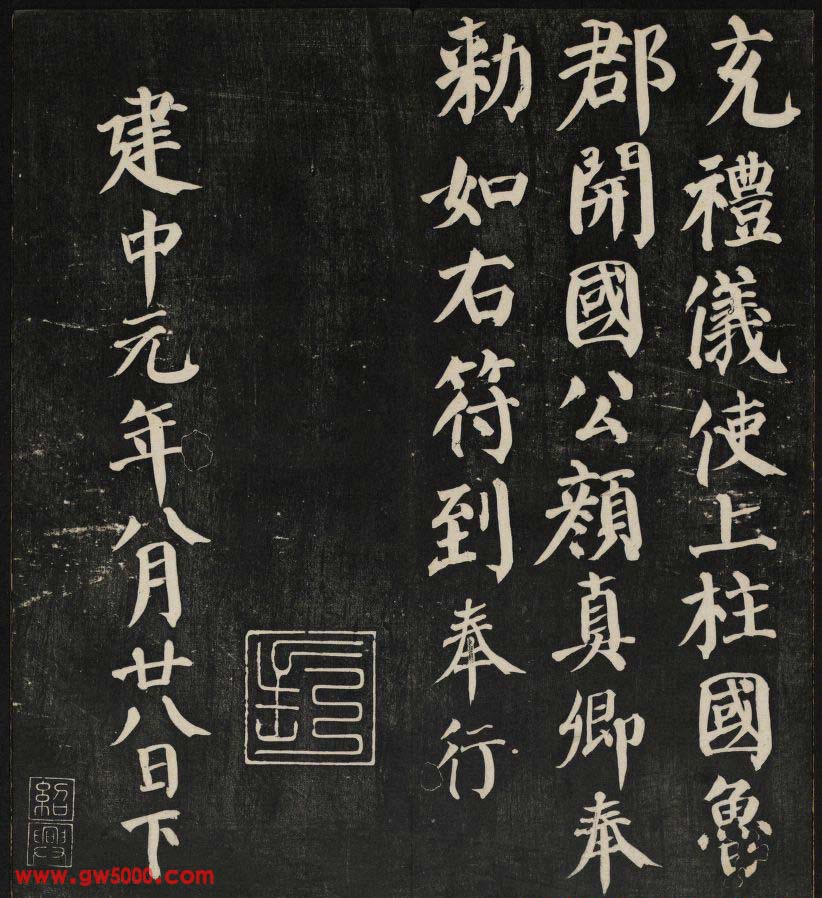 充禮儀使上柱國魯
郡開國公顏真卿奉
勑如右符到奉行
建中元年八月廿八日下
紹興
www.gw5000.com